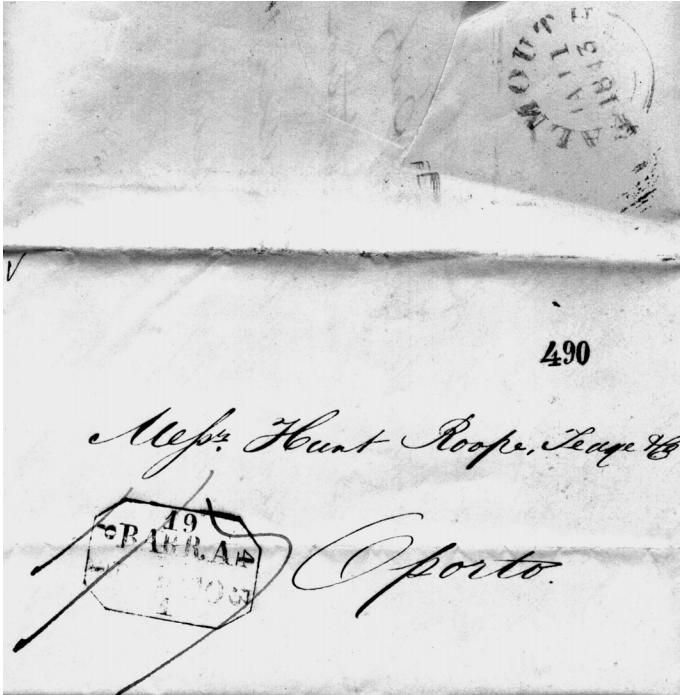 FALMOUTH
490
Messrs. Hunt Roope, Teage & Co
Oporto.
19
BARR.A